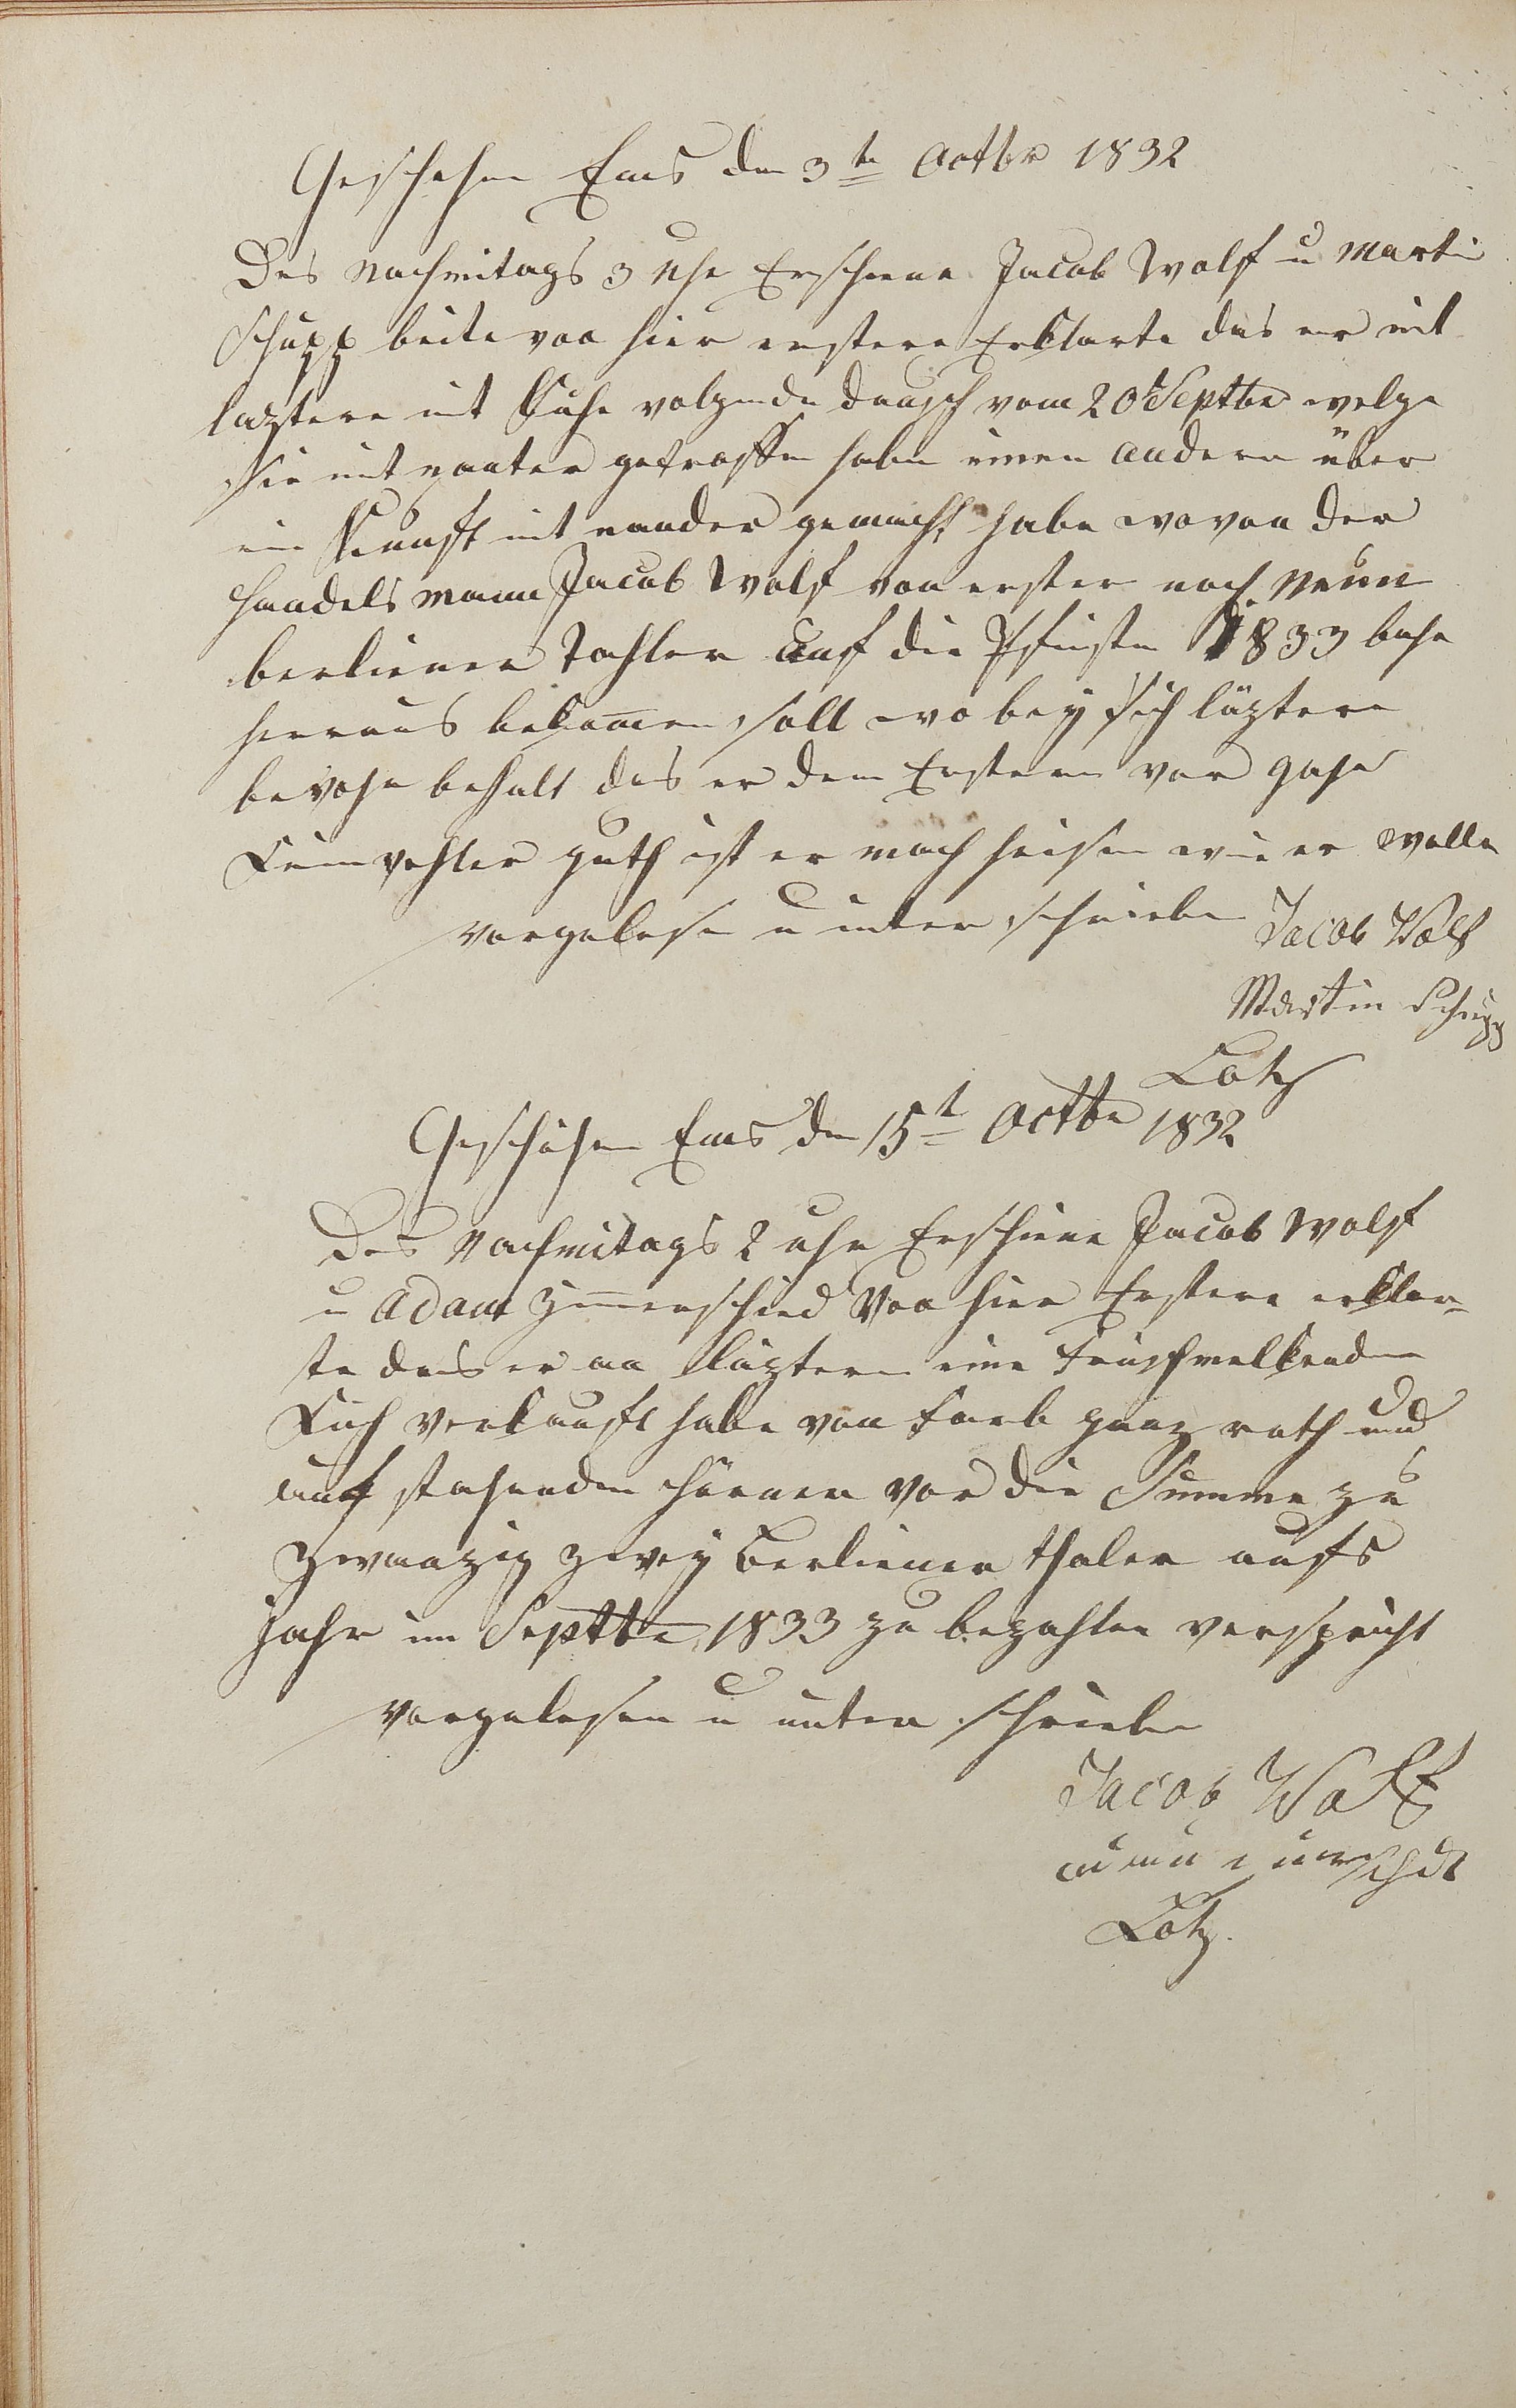 Geschehen Ems den 3te Octbr 1832
Des Nachmitags 3 Uhr Erschiene Jacob Wolf u Martin
Schupp beite von hier erstere Erklarte das er mit
laztere mit Kuhe volgende dausch vom 20t Septbr welge
Sie mit nanter getroffen habe einen andern über
ein Kunft mit nander gemacht habe wovon der
Handels mann Jacob Wolf von erster noch Neun
berliener Tahler auf die Pfinsten 1833
heraus bekomen soll wo bey sich läztere
behalt das er dem Erstern vor
Keinvehler guth ist er mach heisen wie er wolle
vorgelese u unter schrieben Jacob Wolf
Martin Schupp
Lotz
Geschehen Ems den 15t Octbr 1832
Des Nachmitags 2 uhr Erschiene Jacob Wolf
u Adam Zimerschied Von hier Erstere erklar-
te das er an läztern eine Frischmelkenden
Kuh verkauft habe von Farb ganz roth und
auf stehenden Hörner vor die Summe zu
zwanzig zwey berliener thaler aufs
Jahr im Septbr 1833 zu bezahlen verspricht
vorgelesen u unter schrieben
Jacob Wolf
Lotz.